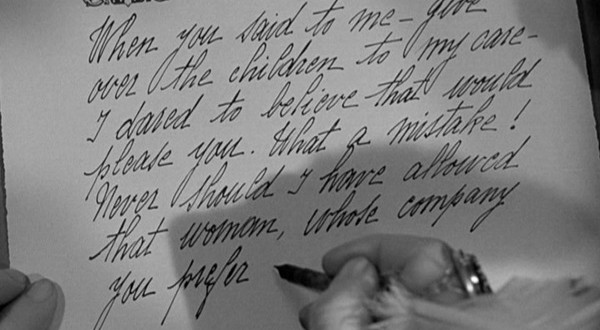 When you said to me - give
over the children to my care -
I dared to believe that would
please you. What a mistake!
Never should I have allowed
that woman, whose company
you prefer